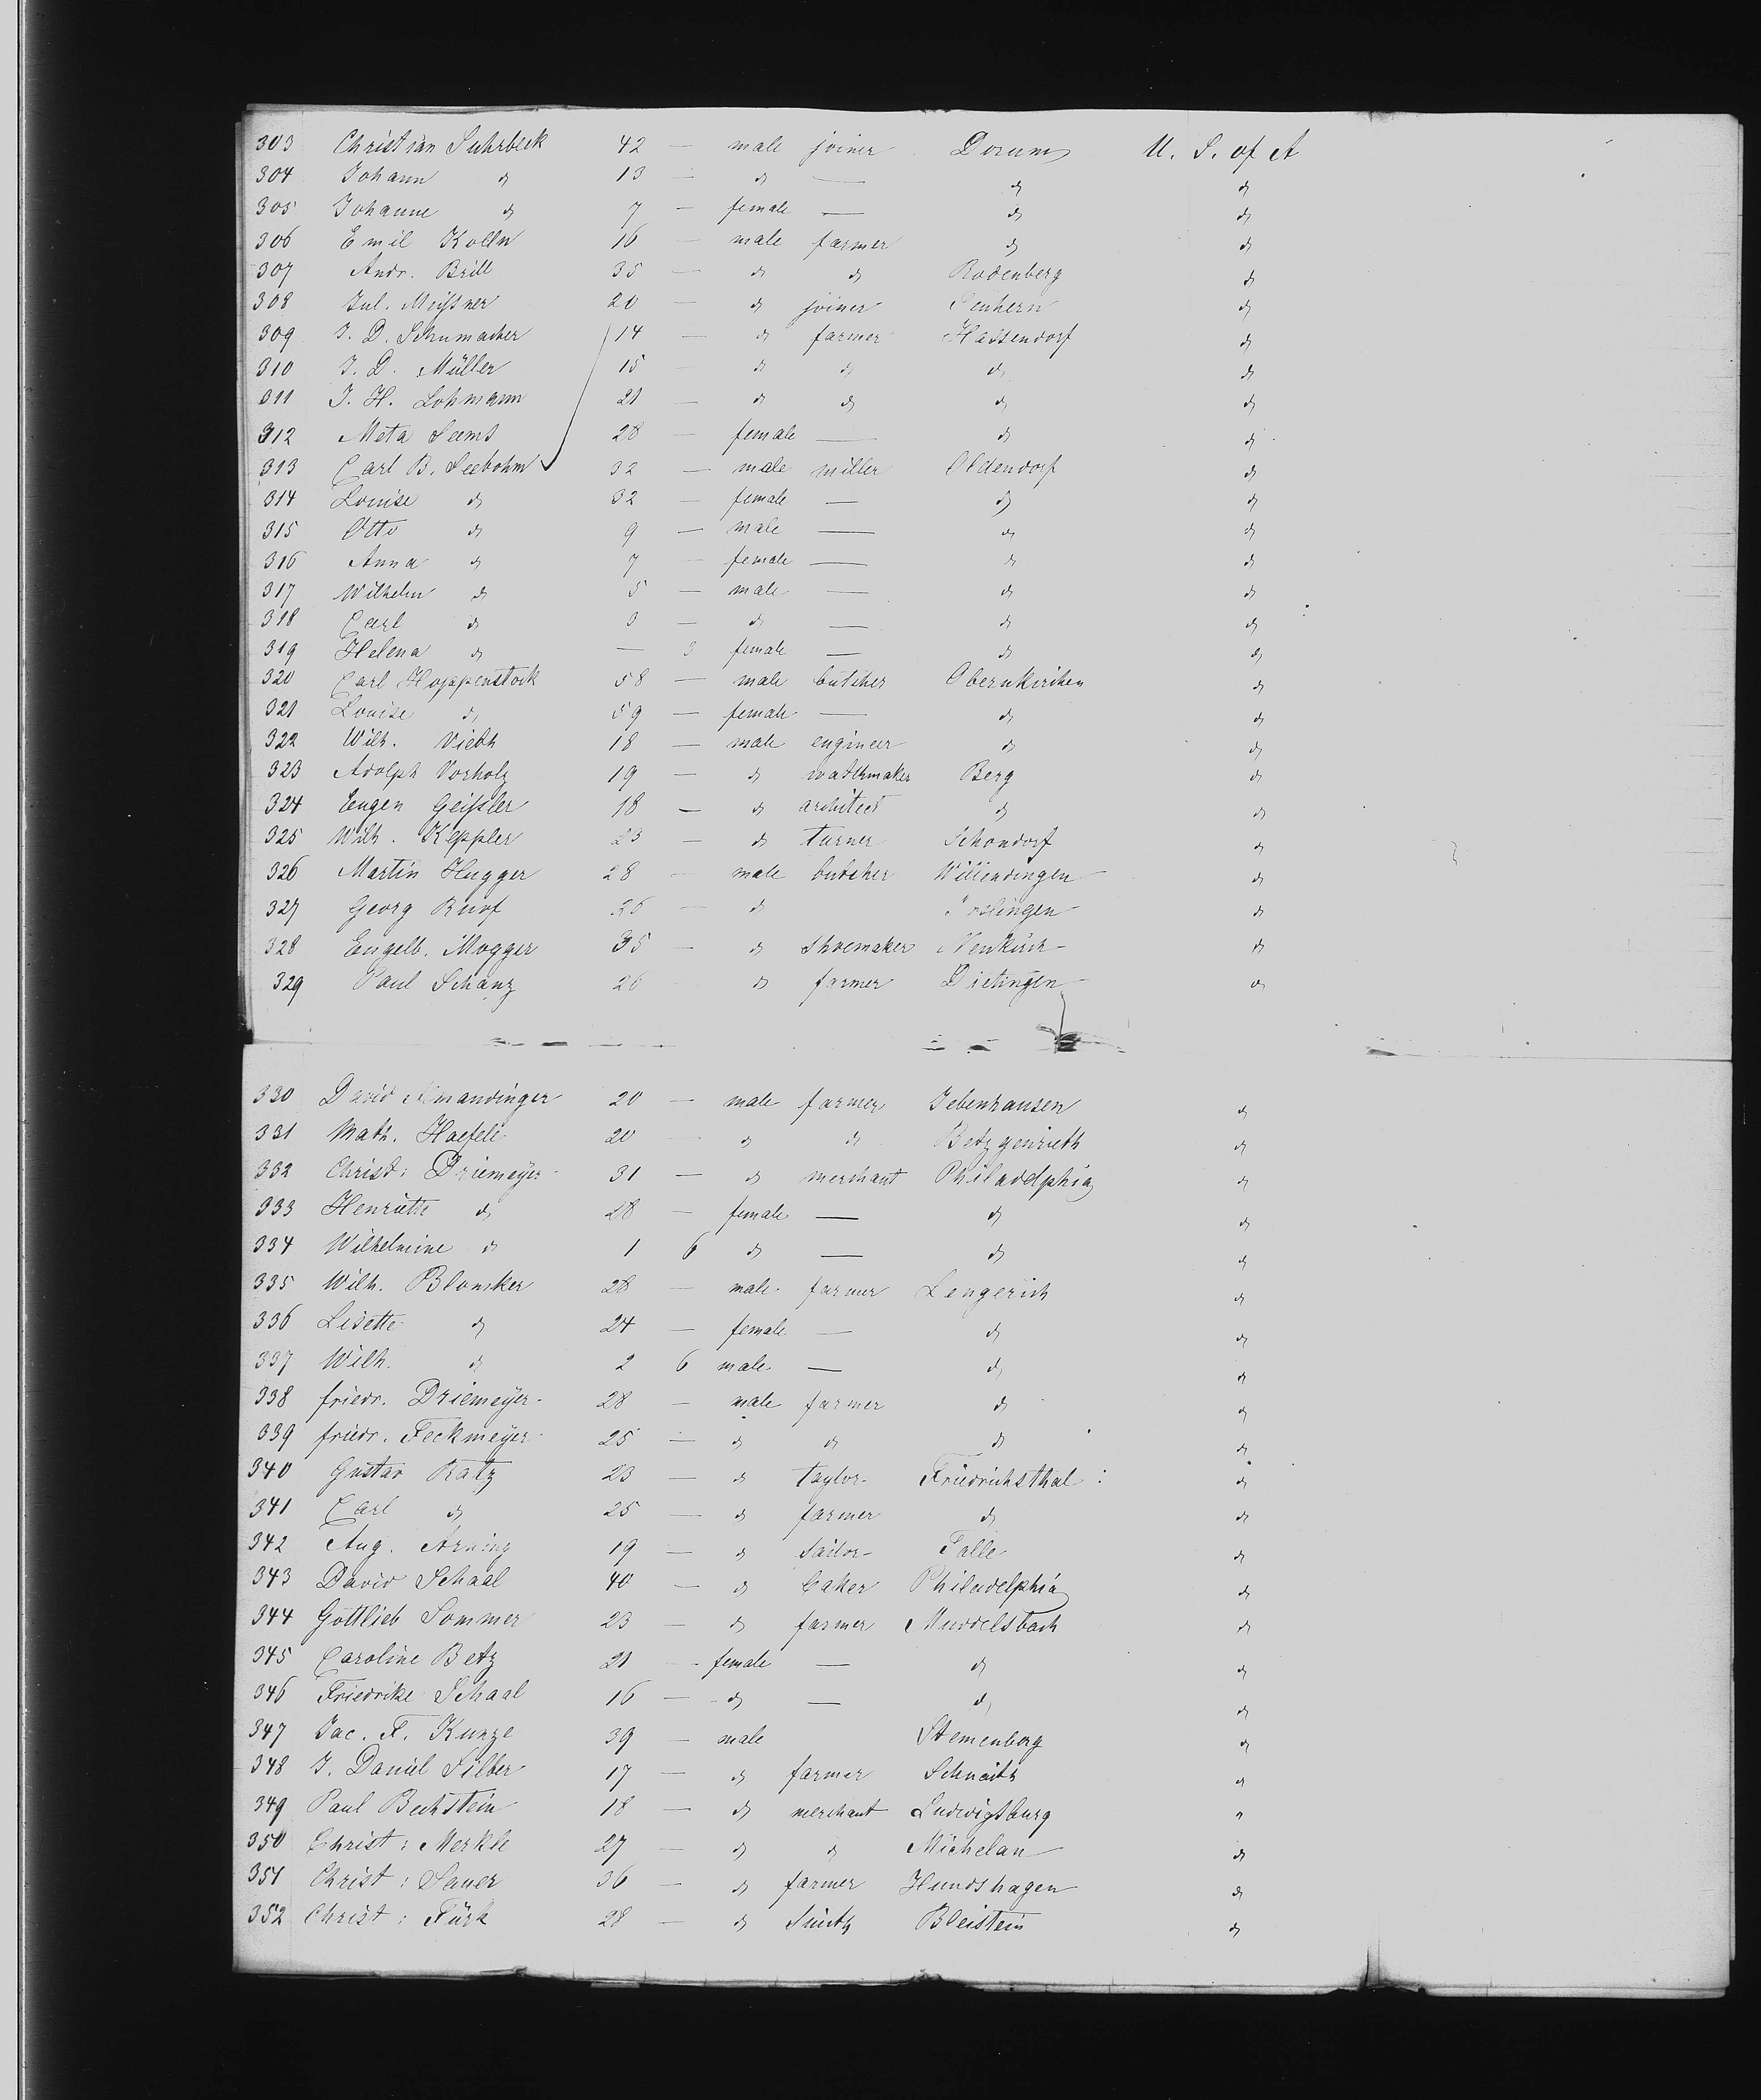 303 Christian Suhrbeck 42 — male joiner Dorum U. S. of A
304 Johann do 13 — do — do do
305 Johanne do 7 — female — do do
306 Emil Kolln 16 — male farmer do do
307 Andr. Brill 35 — do do Rodenberg do
308 Jul. Meißner 20 — do joiner do
309 J. D. Schumacher 14 — do farmer Hassendorf do
310 J. D. Müller 15 — do do do do
311 J. H. Lohmann 21 — do do do do
312 Meta Seems 28 — female — do do
313 Carl B. Seebohm 32 — male miller Oldendorf do
314 Louise do 32 — female — do do
315 Otto do 9 — male — do do
316 Anna do 7 — female — do do
317 Wilhelm do 5 — male — do do
318 Carl do 3 — do — do do
319 Helena do — 3 female — do do
320 Carl Hoppenstock 58 — male butcher Obernkirchen do
321 Louise do 59 — female — do do
322 Wilh. Vieth 18 — male engineer do do
323 Adolph Vorholz 19 — do watchmaker Berg do
324 Eugen Geißler 18 — do architect do do
325 Wilh. Keppler 23 — do turner Schondorf do
326 Martin Hugger 28 — male butcher do
327 Georg Ruof 26 — do do
328 Engelb. Mogger 35 — do Shoemaker Neukirch do
329 Paul Schanz 26 do farmer Dietingen do
330 David 20 — male farmer Jebenhausen do
331 Math. Haefele 20 — do do Betzgenrieth do
332 Christ: Driemeyer 31 — do merchant Philadelphia do
333 Henriette do 28 — female — do do
334 Wilhelmine do 1 6 do — do do
335 Wilh. Blomker 28 — male farmer Lengerich do
336 Lisette do 24 — female — do do
337 Wilh. do 2 6 male — do do
338 friedr. Driemeyer 28 — male farmer do do
339 friedr. Feckmeyer 25 — do do do do
340 Gustav Ratz 23 — do taylor Friedrichsthal: do
341 Carl do 25 — do farmer do do
342 Aug. Arning 19 — do Sailor Talle do
343 David Schaal 40 — do baker Philadelphia do
344 Gottlieb Sommer 23 — do farmer Muddelsbach do
345 Caroline Betz 21 — female — do do
346 Friedrike Schaal 16 — do — do do
347 Jac. F. Kunze 39 — male Stemenberg do
348 J. Daniel Silber 17 — do farmer Schnaith do
349 Paul Bechstein 18 — do merchant Ludwigsburg "
350 Christ: Merkle 27 — do do Michelau do
351 Christ: Sauer 36 — do farmer Hundshagen do
352 Christ: Türk 28 — do Smith Bleistein do